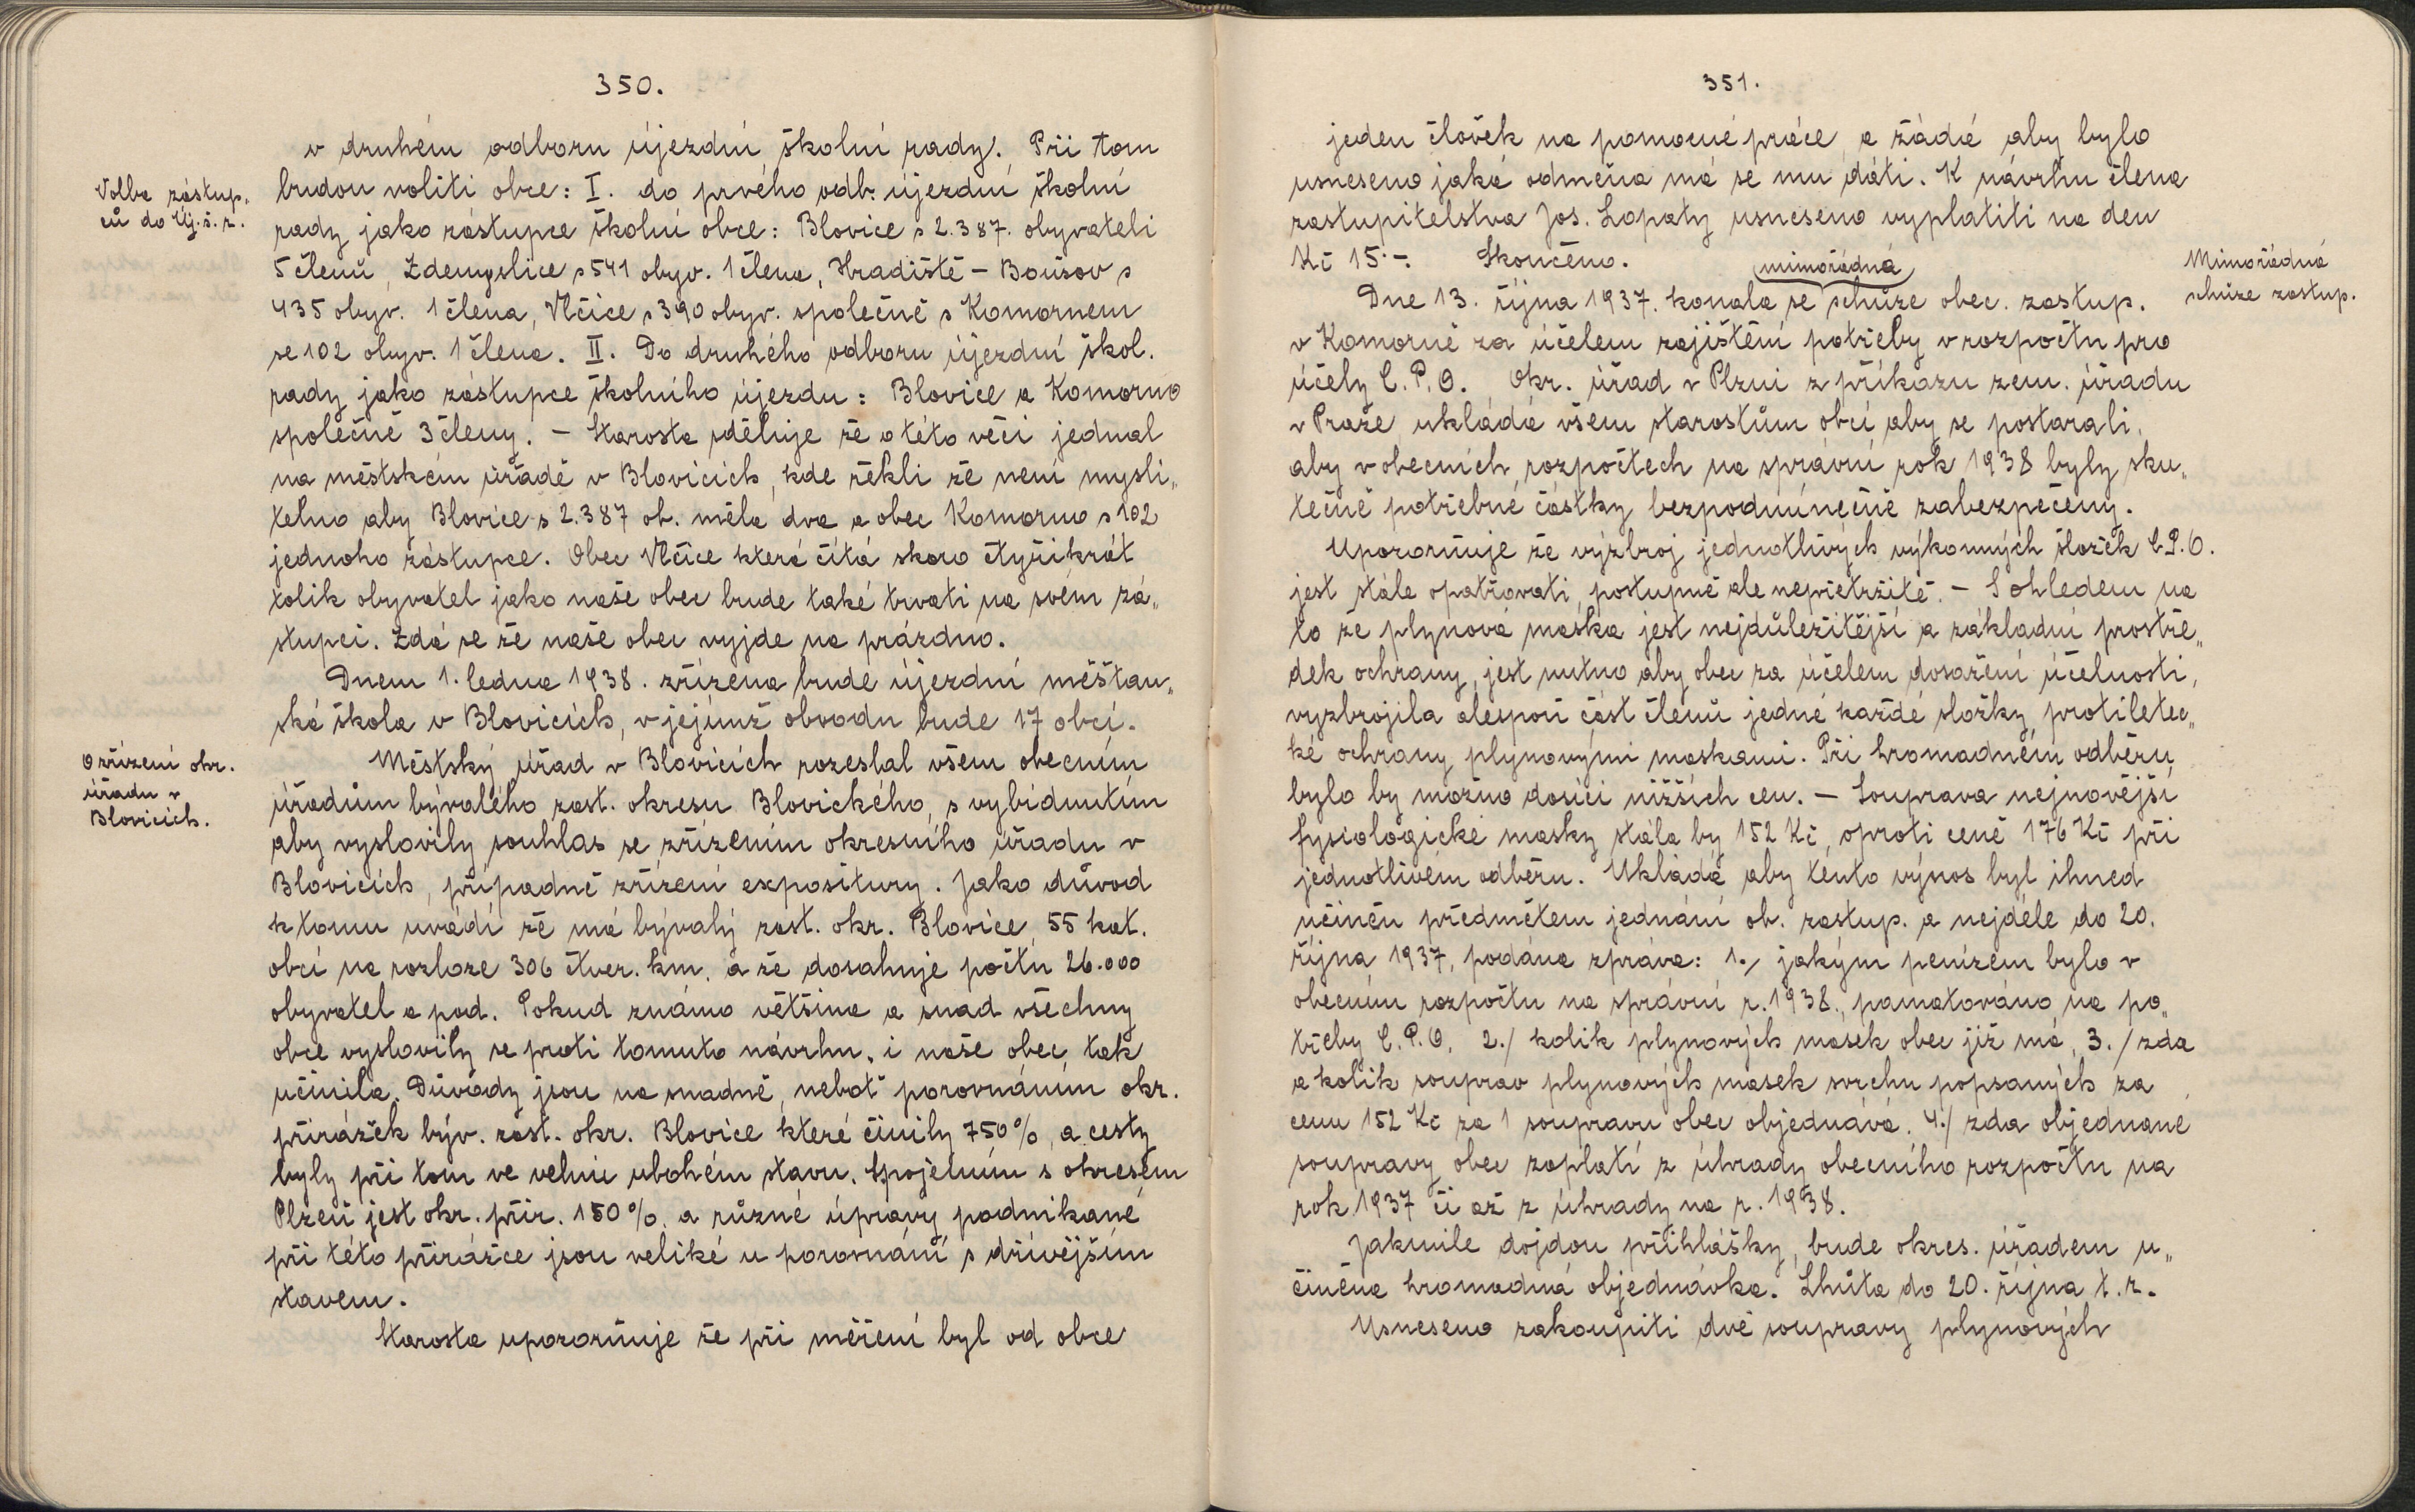 350.
v druhém odboru újezdní školní rady. Při tom
Volba zástup„
ců do Új.š.r.
budou voliti obce: I. do prvého odb. újezdní školní
rady jako zástupce školní obce: Blovice s 2.387. obyvateli
5 členů, Ždemyslice s 541 obyv. 1 člena, Hradiště - Boušov s
435 obyv. 1 člena, Vlčice s 390 obyv. společně s Komornem
se 102 obyv. 1 člena. II. Do druhého odboru újezdní škol.
rady jako zástupce školního újezdu: Blovice a Komorno
společně 3 členy. - Starosta sděluje že o této věci jednal
na městském úřadě v Blovicích, kde řekli že není mysli„
telno aby Blovice s 2.387 ob. měla dva a obec Komorno s 102
jednoho zástupce. Obec Vlčice která čítá skoro čtyřikrát
tolik obyvatel jako naše obec bude také trvati na svém zá„
stupci. Zdá se že naše obec vyjde na prázdno.
Dnem 1. ledna 1938. zřízena bude újezdní měšťan„
ská škola v Blovicích, v jejímž obvodu bude 17 obcí.
O zřízení okr.
úřadu v
Blovicích.
Městský úřad v Blovicích rozeslal všem obecním
úřadům bývalého zast. okresu Blovického, s vybídnutím
aby vyslovily souhlas se zřízením okresního úřadu v
Blovicích, případně zřízení expositury. Jako důvod
k tomu uvádí že má bývalý zast. okr. Blovice 55 kat.
obcí na rozloze 306 čtver. km. a že dosahuje počtu 26.000
obyvatel a pod. Pokud známo většina a snad všechny
obce vyslovily se proti tomuto návrhu, i naše obec tak
učinila. Důvody jsou na snadně, neboť porovnáním okr.
přirážek býv. zast. okr. Blovice které činily 750%, a cesty
byly při tom ve velmi ubohém stavu. Spojením s okresem
Plzeň jest okr. přir. 150%. a různé úpravy podnikané
při této přirážce jsou veliké u porovnání s dřívějším
stavem.
Starosta upozorňuje že při měření byl od obce
351.
jeden člověk na pomocné práce a žádá aby bylo
usneseno jaká odměna má se mu dáti. K návrhu člena
zastupitelstva Jos. Lopaty usneseno vyplatiti na den
Kč 15.-. Skončeno.
mimořádná
Mimořádná
schůze zastup.
Dne 13. října 1937. konala se schůze obec. zastup.
v Komorně za účelem zajištění potřeby v rozpočtu pro
účely C.P.O. Okr. úřad v Plzni z příkazu zem. úřadu
v Praze ukládá všem starostům obcí aby se postarali,
aby v obecních rozpočtech na správní rok 1938 byly sku„
tečně potřebné částky bezpodmínečně zabezpečeny.
Upozorňuje že výzbroj jednotlivých výkonných složek C.P.O.
jest stále opatřovati, postupně ale nepřetržitě. - S ohledem na
to že plynová maska jest nejdůležitější a základní prostře„
dek ochrany, jest nutno aby obec za účelem dosažení účelnosti,
vyzbrojila alespoň část členů jedné každé složky protiletec„
ké ochrany plynovými maskami. Při hromadném odběru
bylo by možno docíci nižších cen. - Souprava nejnovější
fysiologické masky stála by 152 Kč, oproti ceně 176 Kč při
jednotlivém odběru. Ukládá aby tento výnos byl ihned
učiněn předmětem jednání ob. zastup. a nejdéle do 20.
října 1937, podána zpráva: 1./ jakým penízem bylo v
obecním rozpočtu na správní r. 1938., pamatováno na po„
třeby C.P.O. 2./ kolik plynových masek obec již má, 3./ zda
a kolik souprav plynových masek svrchu popsaných za
cenu 152 Kč za 1 soupravu obec objednává. 4./ zda objednané
soupravy obec zaplatí z úhrady obecního rozpočtu na
rok 1937 či až z úhrady na r. 1938.
Jakmile dojdou přihlášky, bude okres. úřadem u„
činěna hromadná objednávka. Lhůta do 20. října t.r.
Usneseno zakoupiti dvě soupravy plynových